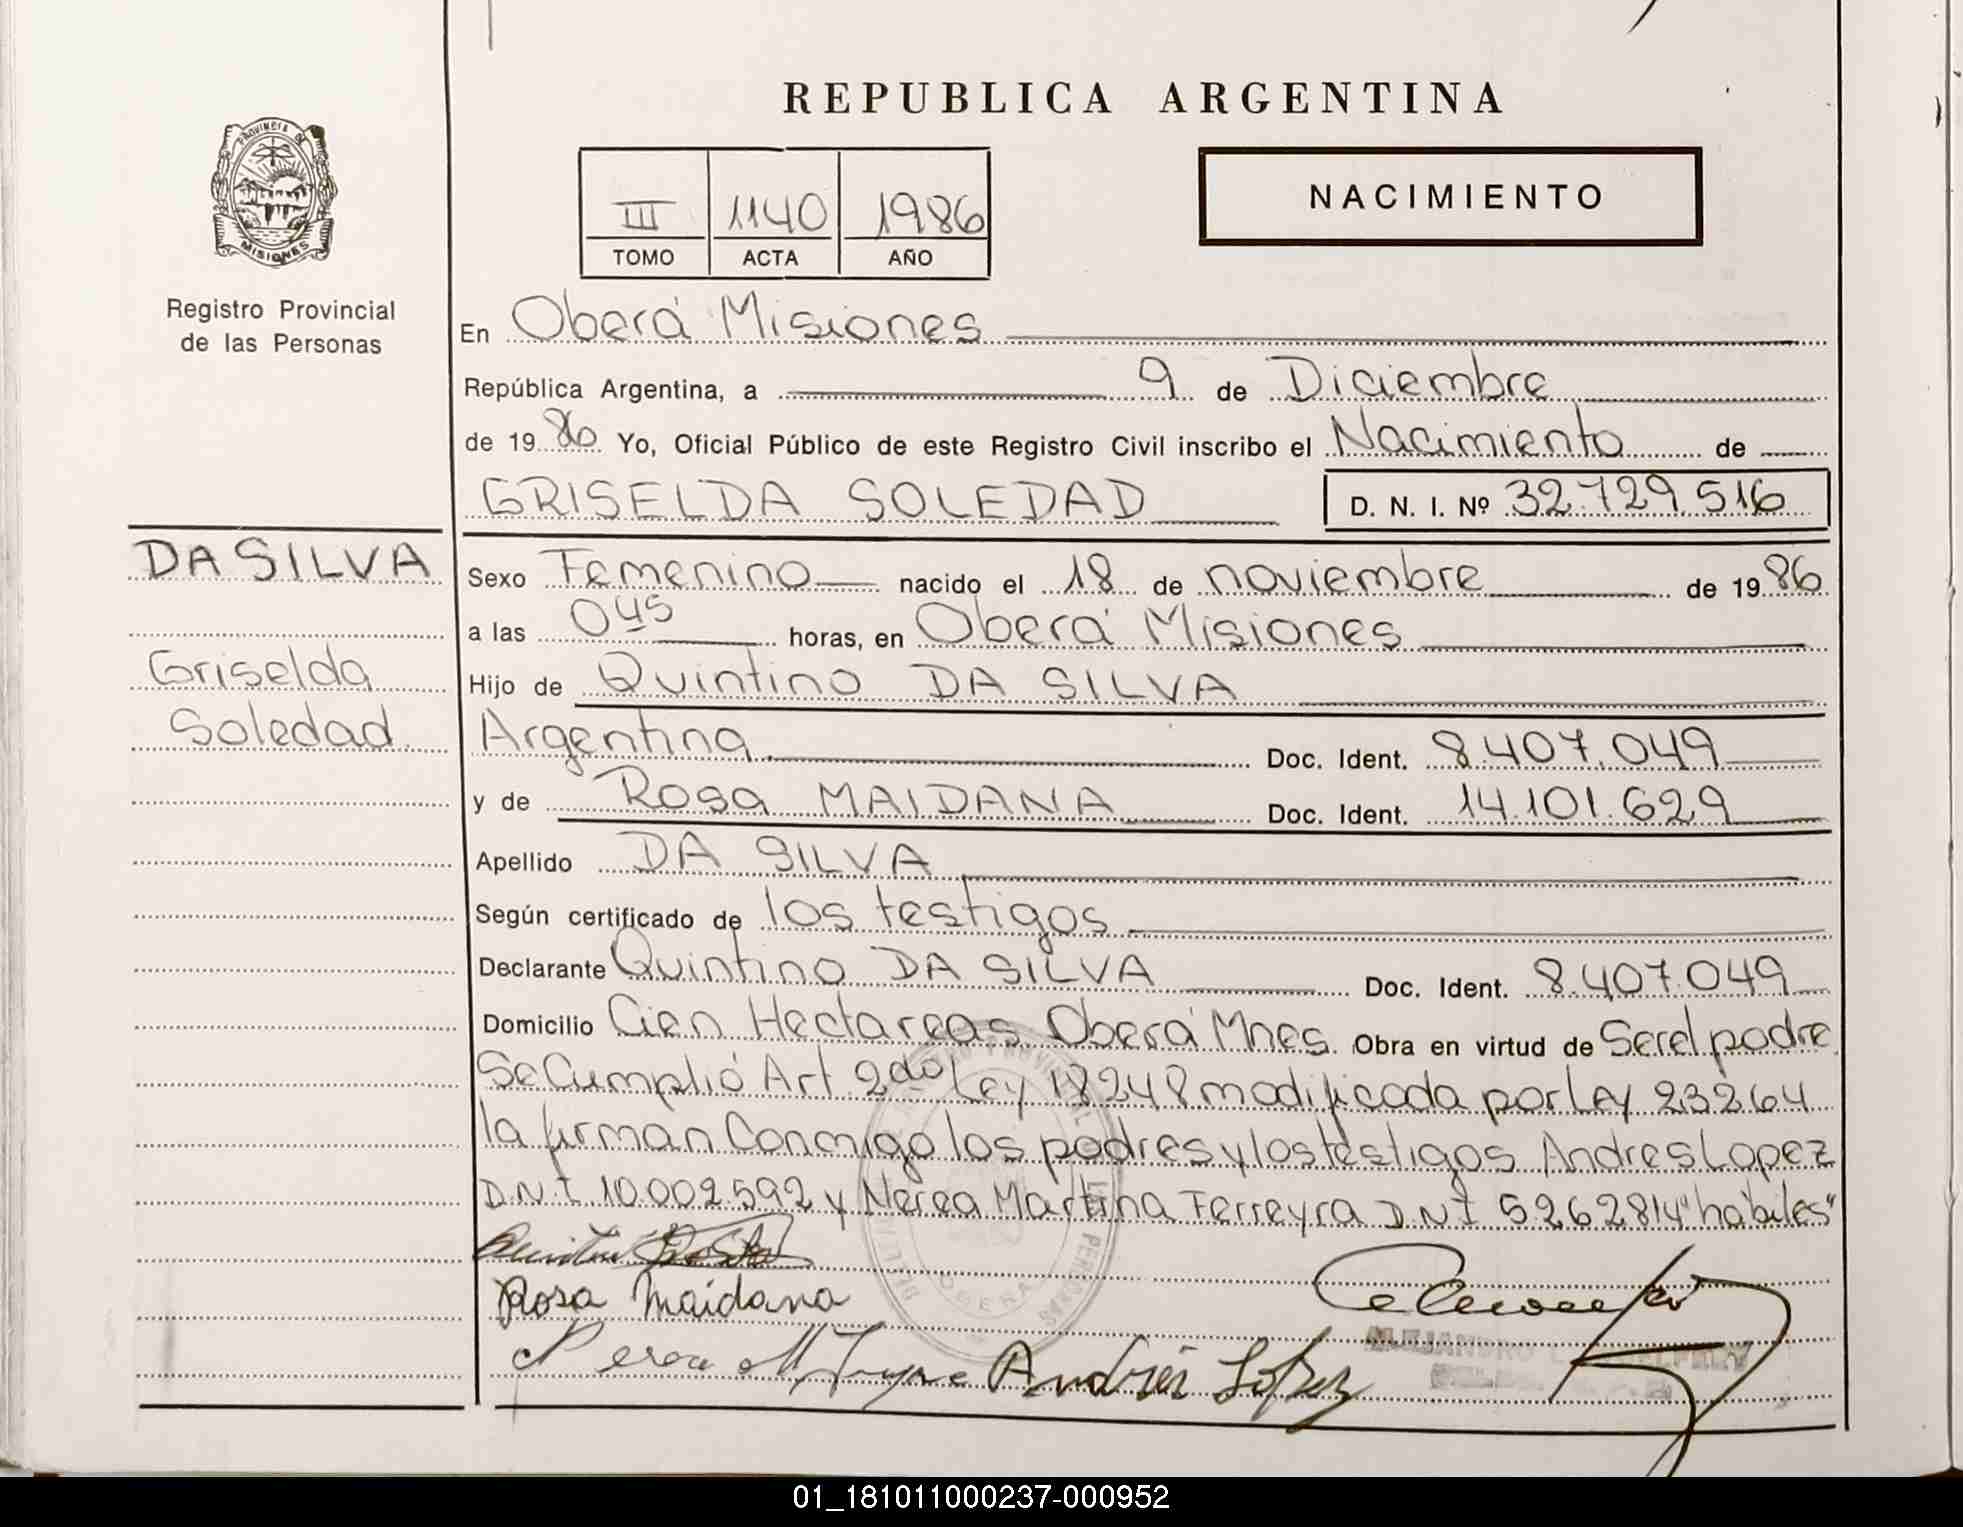 REPUBLICA ARGENTINA
PROVINCIA DE
MISIONES
Registro Provincial
de las Personas
III 1140 1986
TOMO ACTA AÑO
NACIMIENTO
En Oberá Misiones
República Argentina, a 9 de Diciembre
de 19 86 Yo, Oficial Público de este Registro Civil inscribo el Nacimiento de
GRISELDA SOLEDAD D. N. I. Nº 32.729.516
DA SILVA
Griselda
Soledad
Sexo Femenino nacido el 18 de noviembre de 19 86
a las 0 45 horas, en Oberá Misiones
Hijo de Quintino DA SILVA
Argentina Doc. Ident. 8.407.049
y de Rosa MAIDANA Doc. Ident. 14.101.629
Apellido DA SILVA
Según certificado de los testigos
Declarante Quintino DA SILVA Doc. Ident. 8.407.049
Domicilio Cien Hectareas Oberá Mnes. Obra en virtud de Ser el padre
Se Cumplió Art. 2do Ley 18248 modificada por Ley 23264
la firman Conmigo los padres y los testigos Andres Lopez
D.N.I 10.002.592 y Nerea Martina Ferreyra D N I 5262814 "hábiles"
Rosa Maidana
Nerea M Andrés López
ALEJANDRO
OBERA
01_181011000237-000952